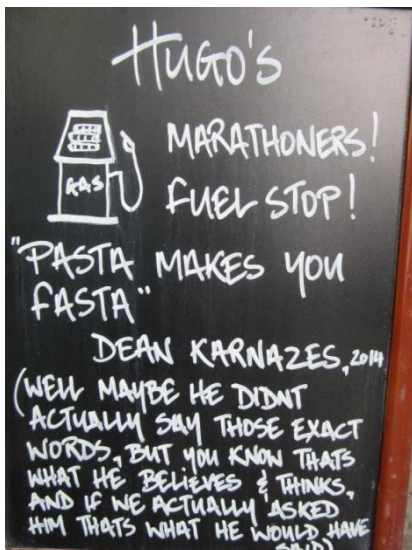 HUGO'S
MARATHONERS!
GAS
FUEL STOP!
"PASTA MAKES YOU
FASTA"
DEAN KARNAZES, 2014
(WELL MAYBE HE DIDNT
ACTUALLY SAY THOSE EXACT
WORDS, BUT YOU KNOW THATS
WHAT HE BELIEVES & THINKS,
AND IF WE ACTUALLY ASKED
HIM THATS WHAT HE WOULD HAVE